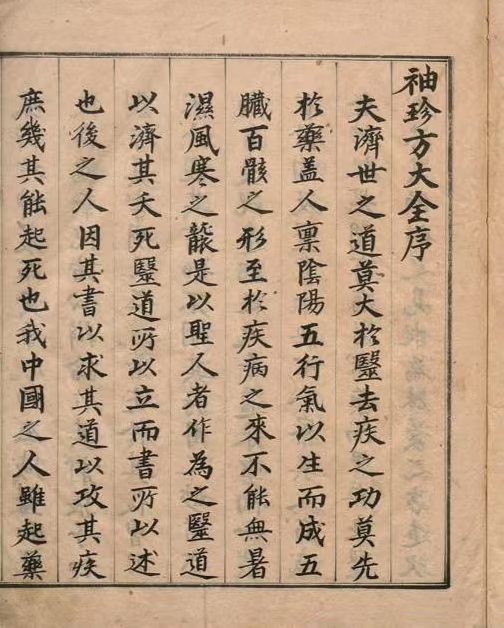 袖珍方大全序
夫濟世之道莫大於毉去疾之功莫先
於藥盖人禀陰陽五行氣以生而成五
臟百骸之形至於疾病之來不能無暑
濕風寒之襲是以聖人者作為之毉道
以濟其夭死毉道所以立而書所以述
也後之人因其書以求其道以攻其疾
庶幾其能起死也我中國之人雖起藥